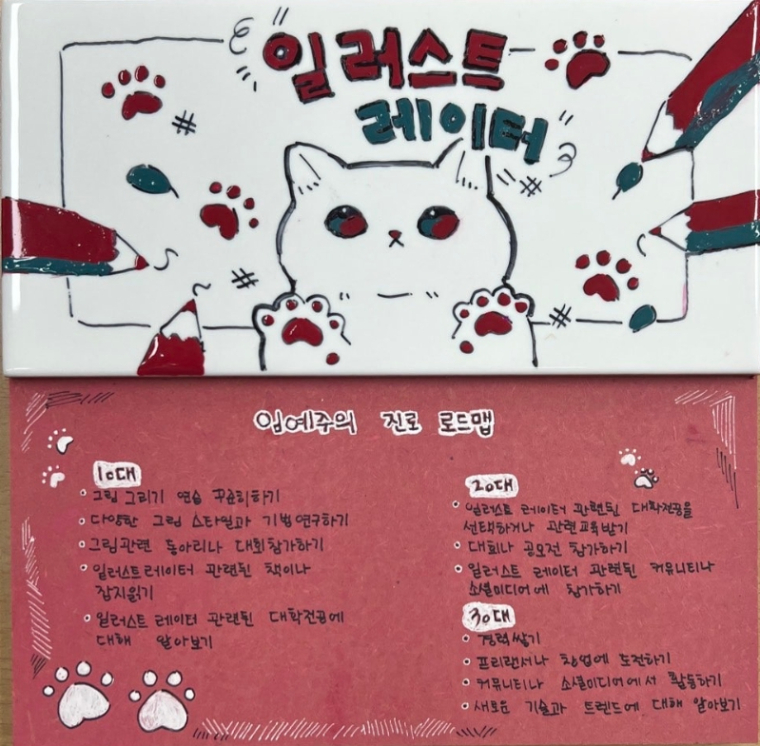 일러스트
레이터
임예주의 진로 로드맵
10대
• 그림 그리기 연습 꾸준히하기
• 다양한 그림 스타일과 기법연구하기
• 그림관련 동아리나 대회참가하기
• 일러스트레이터 관련된 책이나
잡지읽기
• 일러스트 레이터 관련된 대학전공에
대해 알아보기
20대
• 일러스트 레이터 관련된 대학전공을
선택하거나 관련교육받기
• 대회나 공모전 참가하기
• 일러스트 레이터 관련된 커뮤니티나
소셜미디어에 참가하기
30대
• 경력쌓기
• 프리랜서나 창업에 도전하기
• 커뮤니티나 소셜미디어에서 활동하기
• 새로운 기술과 트렌드에 대해 알아보기